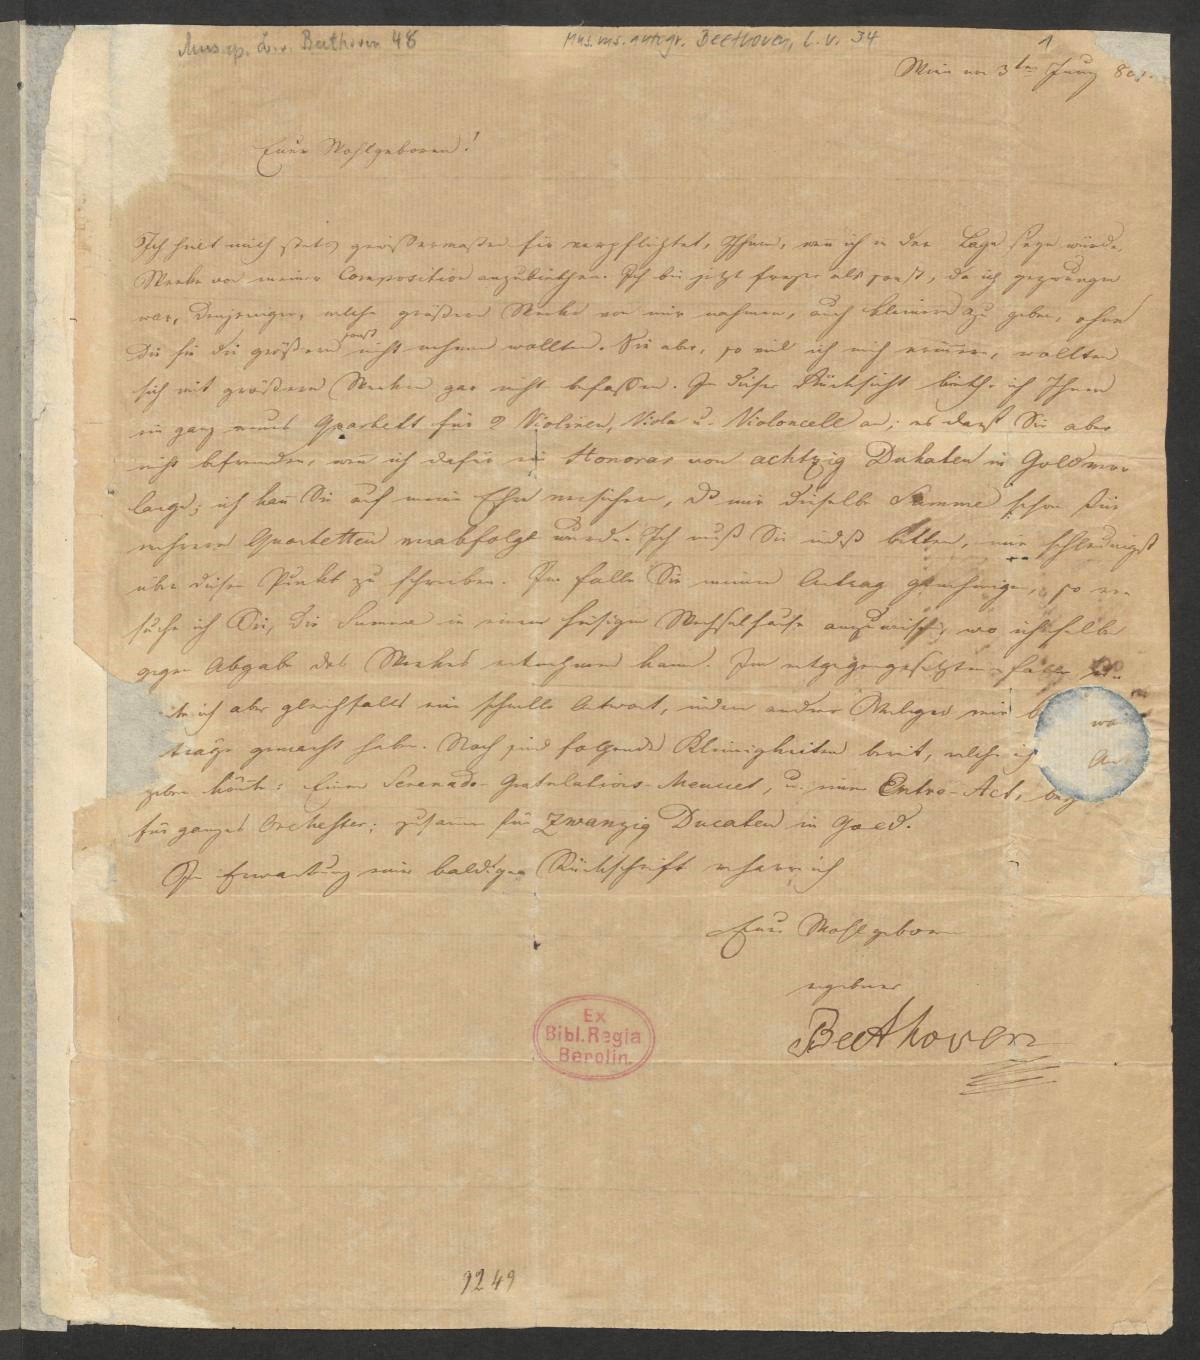 Mus. ep. L. v. Beethoven 48
Mus. ms. autogr. Beethoven, L. v. 34
1
Wien am 3ten Juny 8
Euer Wohlgeboren!
Ich hielt mich stets gewissermaßen für verpflichtet, Ihnen, wen ich in der Lage seyn würde,
Werke von meiner Composition anzubiethen. Ich bin jetzt freyer als sonst, da ich gezwungen
war, denjenigen, welche größere Werke von mir nahmen, auch kleinere zu geben, ohne
Die sie die größern sonst nicht nehmen wollten. Sie aber, so viel ich mich erinnere, wollten
sich mit größern Werken gar nicht befassen. In dieser Rücksicht biethe ich Ihnen
ein ganz neues Quartett für 2 Violinen, Viola u. Violoncell an; es darf Sie aber
nicht befremden, wen ich dafür ein Honorar von achtzig Dukaten in Gold ver
lange; ich kan Sie auf meine Ehre versichern, dß mir dieselbe Summe schon für
mehrere Quartetten verabfolgt wurde. Ich muß Sie indeß bitten, mir schleunigst
über diesen Punkt zu schreiben. Im Falle Sie meinen Antrag genehmigen, so er
suche ich Sie, die Summe in einem hiesigen Wechselhause anzuweisen, wo ich selbe
gegen Abgabe des Werkes entnehmen kann. Im entgegengesetzten Falle
ich aber gleichfalls eine schnelle Antwort, indem andere Verleger mir
träge gemacht haben. Noch sind folgende Kleinigkeiten bereit, welche ich
geben könte: Einen Serenade-Gratulations-Menuet, u. einen Entre-Act,
für ganzes Orchester; zusamen für zwanzig Ducaten in Gold.
In Erwartung einer baldigen Rückschrift verharre ich
Euer Wohlgeboren
ergebner
Beethoven
Ex
Bibl. Regia
Berolin.
9249